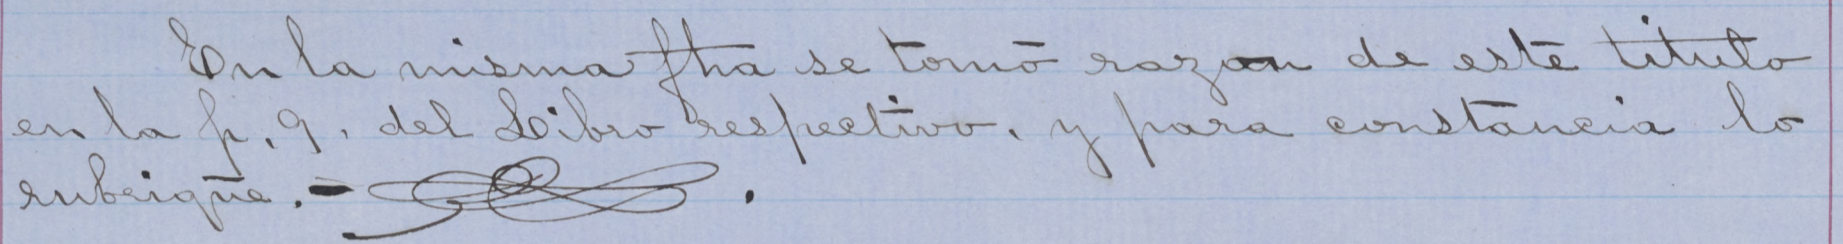 En la misma fha se tomó razon de este titulo
en la p. 9. del Libro respectivo, y para constancia lo
rubrique. -